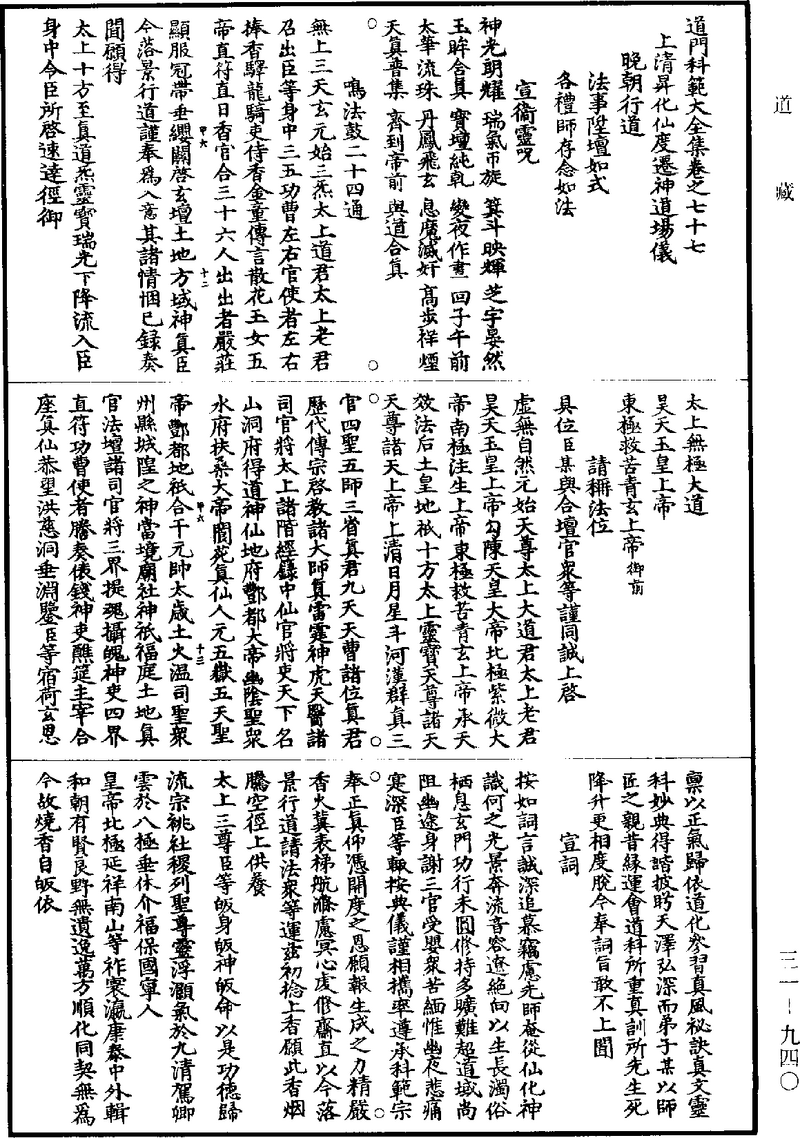 道藏
道門科範大全集卷之七十七
上清昇化仙度遷神道場儀
晚朝行道
法事陞壇如式
各禮師存念如法
宣衞靈呪
神光朗耀 瑞氣帀旋 箕斗映輝 芝宇晏然
玉眸含真 寶壇純乹 變夜作晝 回子午前
太華流珠 丹鳳飛玄 息魔滅奸 高步祥煙
天真普集 齊到帝前 與道合真
鳴法鼓二十四通
無上三天玄元始三炁太上道君太上老君
召出臣等身中三五功曹左右官使者左右
捧香驛龍騎吏侍香金童傳言散花玉女五
帝直符直日香官合三十六人出出者嚴莊
顯服冠帶垂纓關啓玄壇土地方域神真臣
今落景行道謹奉為入意其諸情悃已錄奏
聞願得
太上十方至真道炁靈寶瑞光下降流入臣
身中令臣所啓速達徑御
太上無極大道
昊天玉皇上帝
東極救苦青玄上帝御前
請稱法位
具位臣某與合壇官衆等謹同誠上啓
虛無自然元始天尊太上大道君太上老君
昊天玉皇上帝勾陳天皇大帝北極紫微大
帝南極注生上帝東極救苦青玄上帝承天
效法后土皇地祇十方太上靈寶天尊諸天
天尊諸天上帝上清日月星斗河漢群真三
官四聖五師三省真君九天天曹諸位真君
歷代傳宗啓教諸大師真雷霆神虎天醫諸
司官將太上諸階經籙中仙官將吏天下名
山洞府得道神仙地府酆都大帝幽陰聖衆
水府扶桑大帝閬苑真仙人元五嶽五天聖
帝酆都地祇合干元帥太歲土火溫司聖衆
州縣城隍之神當境廟社神祇福庭土地真
官法壇諸司官將三界提魂攝魄神吏四界
直符功曹使者謄奏俵錢神吏醮筵主宰合
座真仙恭望洪慈洞垂淵鑒臣等宿荷玄恩
稟以正氣歸依道化參習真風祕訣真文靈
科妙典得諧披眄天澤弘深而弟子某以師
匠之親昔緣運會道科所重真訓所先生死
降升更相度脫今奉詞旨敢不上聞
宣詞
按如詞言誠深追慕竊慮先師奄從仙化神
識何之光景奔流音容遼絕向以生長濁俗
栖息玄門功行未圓修持多曠難超道域尚
阻幽途身謝三官受嬰衆苦緬惟幽夜悲痛
寔深臣等輒按典儀謹相攜率遵承科範宗
奉正真仰憑開度之恩願報生成之力精嚴
香火冀表梯航滌慮冥心虔修齋直以今落
景行道請法衆等運茲初捻上香願此香烟
騰空徑上供養
太上三尊臣等皈身皈神皈命以是功德歸
流宗祧社稷列聖尊靈浮灝氣於九清駕卿
雲於八極垂休介福保國寧人
皇帝北極延祥南山等祚寰瀛康泰中外輯
和朝有賢良野無遺逸萬方順化同契無為
今故燒香自皈依
三一-九四〇